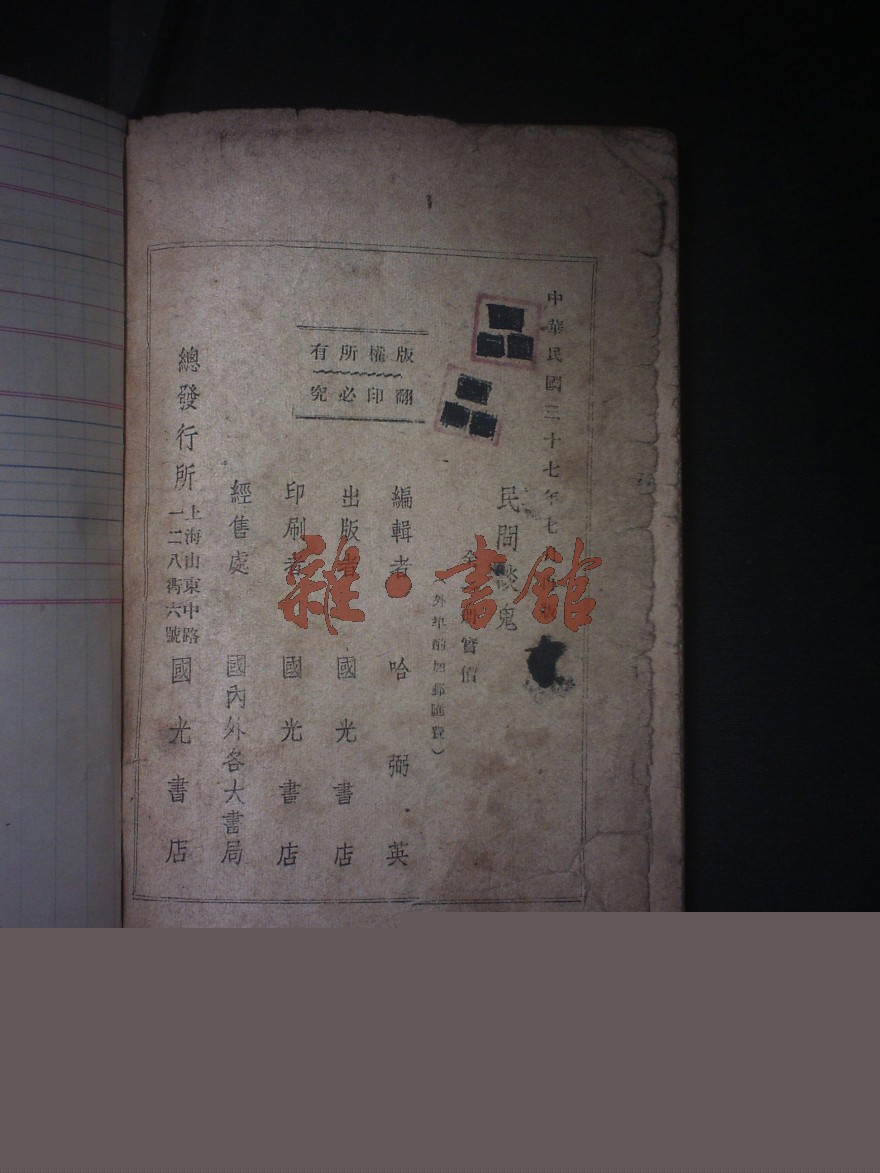 中華民國三十七年七月
民間談鬼
實價
外埠酌加郵匯費）
版權所有
翻印必究
編輯者 哈弼英
出版者 國光書店
印刷者 國光書店
經售處 國內外各大書局
總發行所 上海山東中路一二八衖六號 國光書店
雜·書館